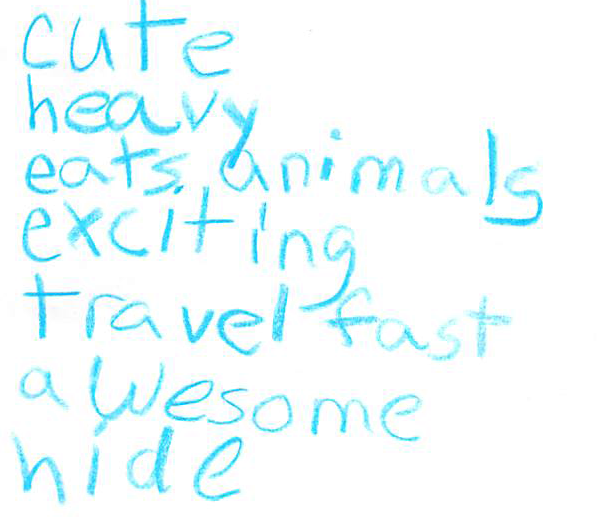 cute
heavy
eats animals
exciting
travel fast
awesome
hide